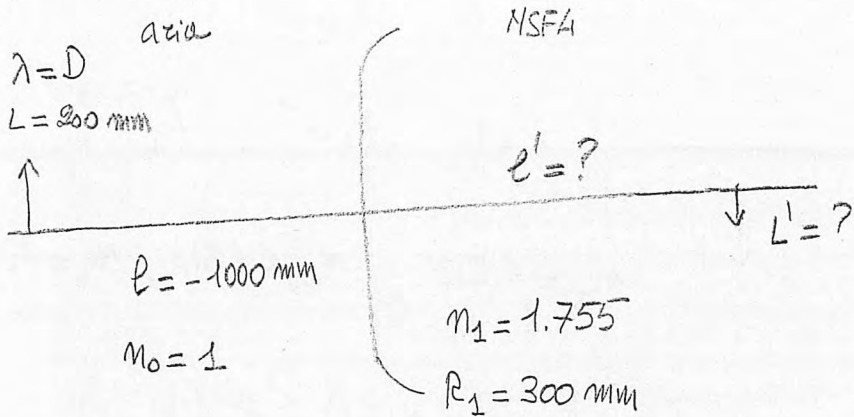 aria
NSF4
λ=D
L=200 mm
l'=?
L'=?
l=-1000 mm
n₀=1
n₁=1.755
R₁=300 mm